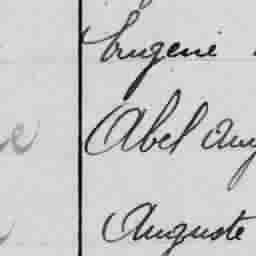 Eugenie
Abel Aug
Auguste